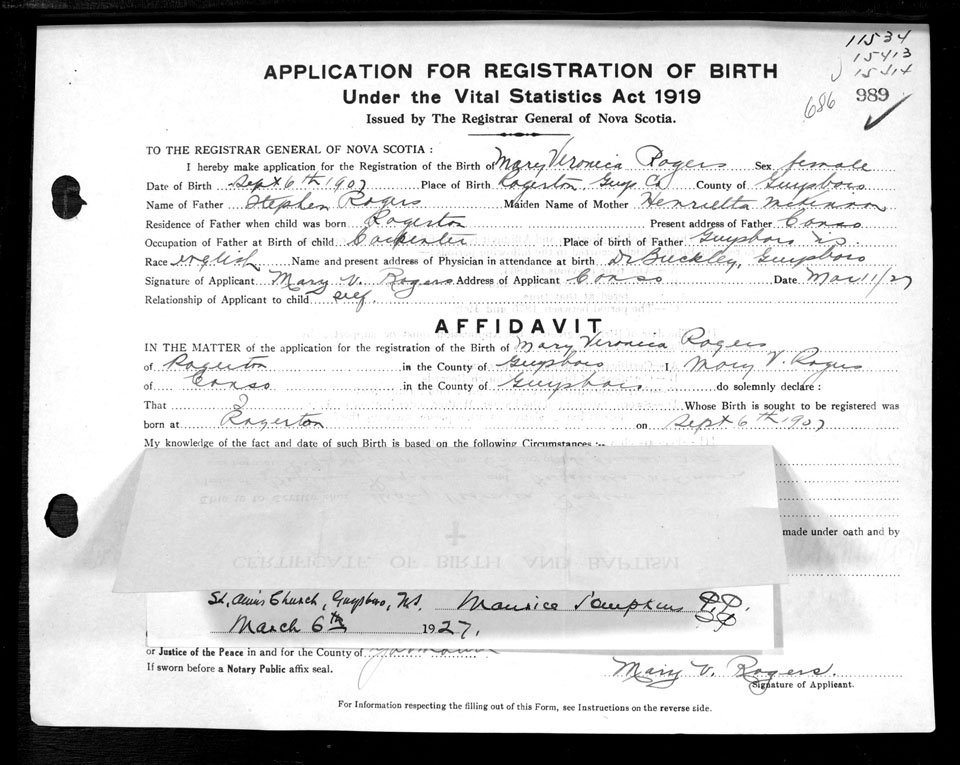 11534
15413
15414
686 989
APPLICATION FOR REGISTRATION OF BIRTH
Under the Vital Statistics Act 1919
Issued by The Registrar General of Nova Scotia.
TO THE REGISTRAR GENERAL OF NOVA SCOTIA :
I hereby make application for the Registration of the Birth of Mary Veronica Rogers Sex female
Date of Birth Sept 6th 1907 Place of Birth Rogerton, Guys Co County of Guysboro
Name of Father Stephen Rogers Maiden Name of Mother Henrietta McKinnon
Residence of Father when child was born Rogerton Present address of Father Canso
Occupation of Father at Birth of child Carpenter Place of birth of Father Guysboro NS.
Race english Name and present address of Physician in attendance at birth Dr Buckley, Guysboro
Signature of Applicant Mary V. Rogers Address of Applicant Canso Date Mar 11/27
Relationship of Applicant to child self.
AFFIDAVIT
IN THE MATTER of the application for the registration of the Birth of Mary Veronica Rogers
of Rogerton in the County of Guysboro I, Mary V. Rogers
of Canso in the County of Guysboro do solemnly declare :
That I Whose Birth is sought to be registered was
born at Rogerton on Sept 6th 1907
My knowledge of the fact and date of such Birth is based on the following Circumstances :--
made under oath and by
CERTIFICATE OF BIRTH AND BAPTISM
St. Ann's Church, Guysboro, N.S. Maurice Tompkins P.P.
March 6th 1927.
or Justice of the Peace in and for the County of
If sworn before a Notary Public affix seal.
Mary V. Rogers.
Signature of Applicant.
For Information respecting the filling out of this Form, see Instructions on the reverse side.